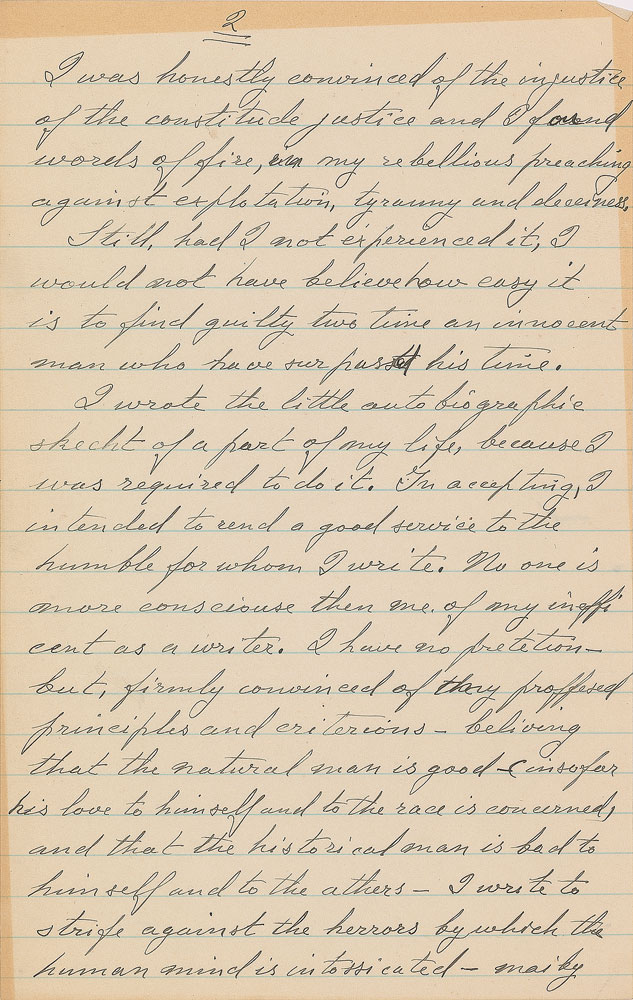 2
I was honestly convinced of the injustice
of the constitude justice and I found
words of fire, in my rebellious preaching
against explotation, tyranny and
Still, had I not experienced it, I
would not have believe how easy it
is to find guilty two time an innocent
man who have surpasst his time.
I wrote the little autobiographic
skecht of a part of my life, because I
was required to do it. In accepting, I
intended to rend a good service to the
humble for whom I write. No one is
more consciouse then me, of my ineffi
cent as a writer. I have no pretetion–
but, firmly convinced of my proffesed
principles and criterions – beliving
that the natural man is good – (insofar
his love to himself and to the race is concerned,
and that the historical man is bad to
himself and to the athers – I write to
strife against the herrors by which the
human mind is intossicated – maiby